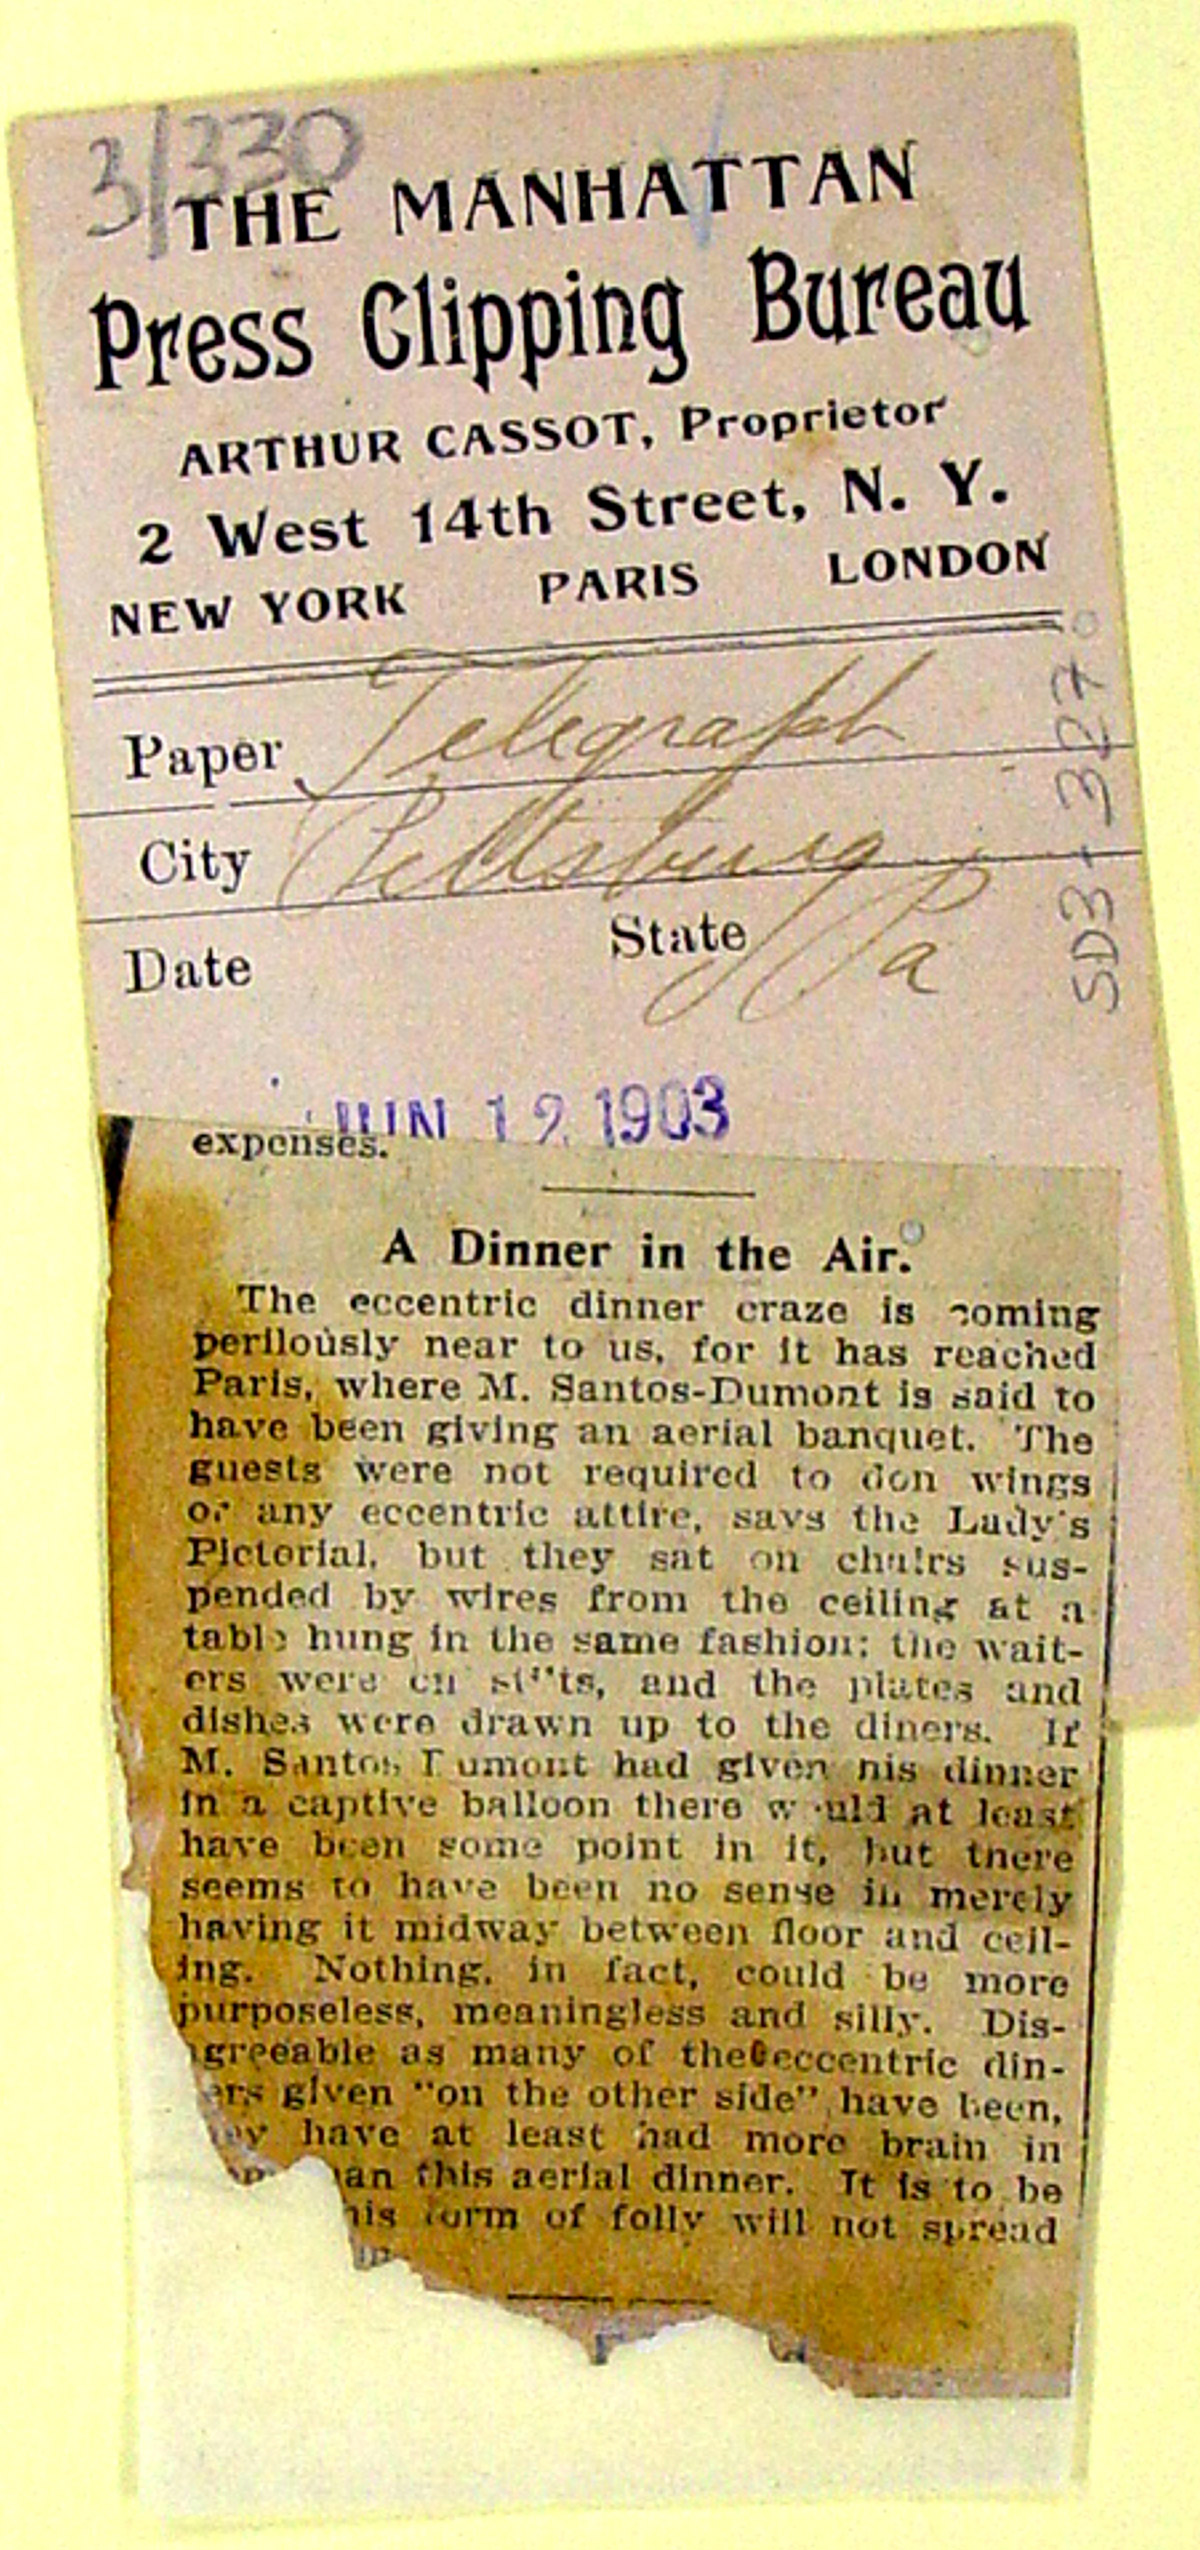 3/330
THE MANHATTAN
Press Clipping Bureau
ARTHUR CASSOT, Proprietor
2 West 14th Street, N. Y.
NEW YORK PARIS LONDON
Paper Telegraph
City Pittsburg
Date State Pa
SD3-3270
JUN 12 1903
expenses.
A Dinner in the Air.
The eccentric dinner craze is coming
perilously near to us, for it has reached
Paris, where M. Santos-Dumont is said to
have been giving an aerial banquet. The
guests were not required to don wings
or any eccentric attire, says the Lady's
Pictorial, but they sat on chairs sus-
pended by wires from the ceiling at a
table hung in the same fashion; the wait-
ers were on stilts, and the plates and
dishes were drawn up to the diners. If
M. Santos Dumont had given his dinner
in a captive balloon there would at least
have been some point in it, but there
seems to have been no sense in merely
having it midway between floor and ceil-
ing. Nothing, in fact, could be more
purposeless, meaningless and silly. Dis-
greeable as many of the eccentric din-
ers given "on the other side" have been,
ey have at least had more brain in
an this aerial dinner. It is to be
his form of folly will not spread